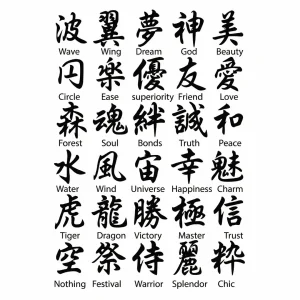 波 翼 夢 神 美
Wave Wing Dream God Beauty
円 楽 優 友 愛
Circle Ease superiority Friend Love
森 魂 絆 誠 和
Forest Soul Bonds Truth Peace
水 風 宙 幸 魅
Water Wind Universe Happiness Charm
虎 龍 勝 極 信
Tiger Dragon Victory Master Trust
空 祭 侍 麗 粋
Nothing Festival Warrior Splendor Chic